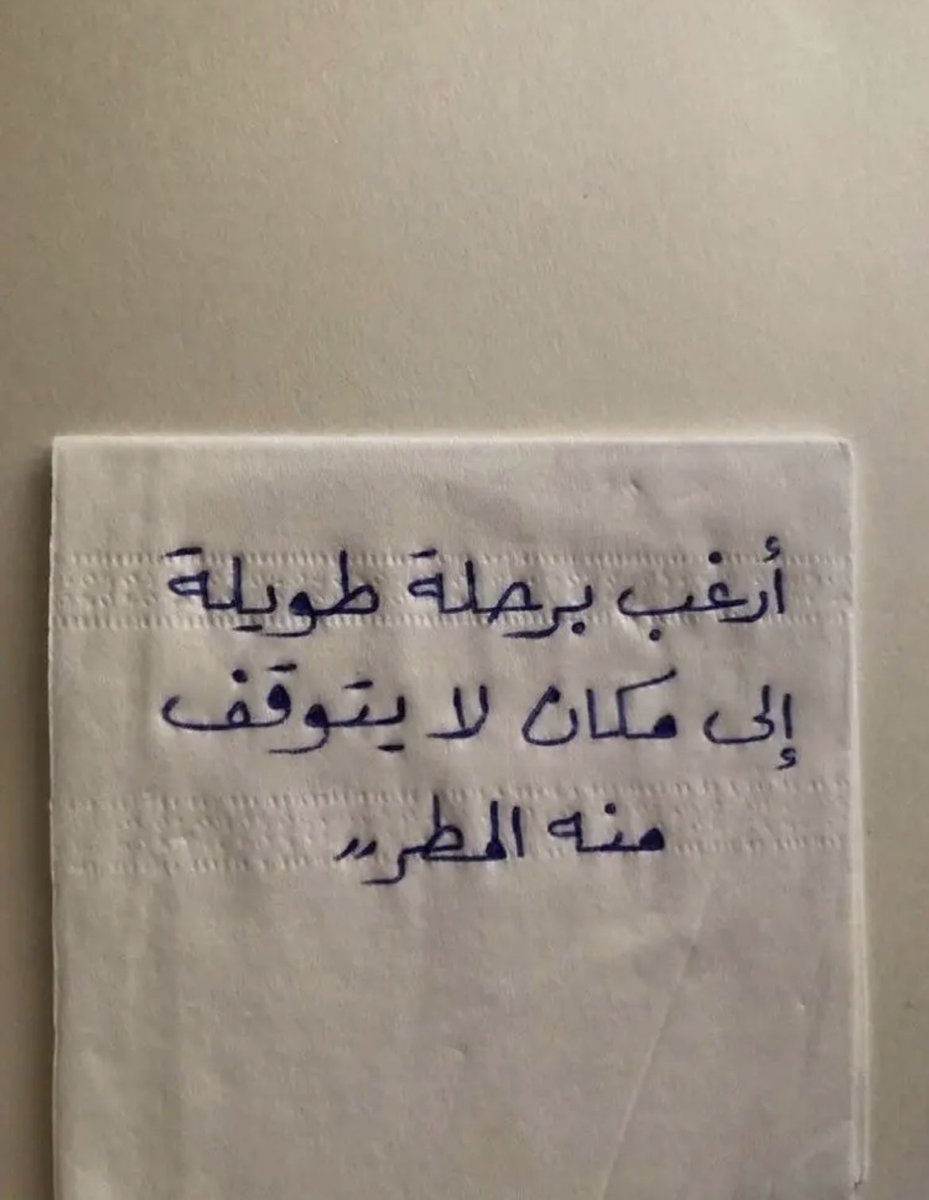 أرغب برحلة طويلة
إلى مكان لا يتوقف
منه المطر,,